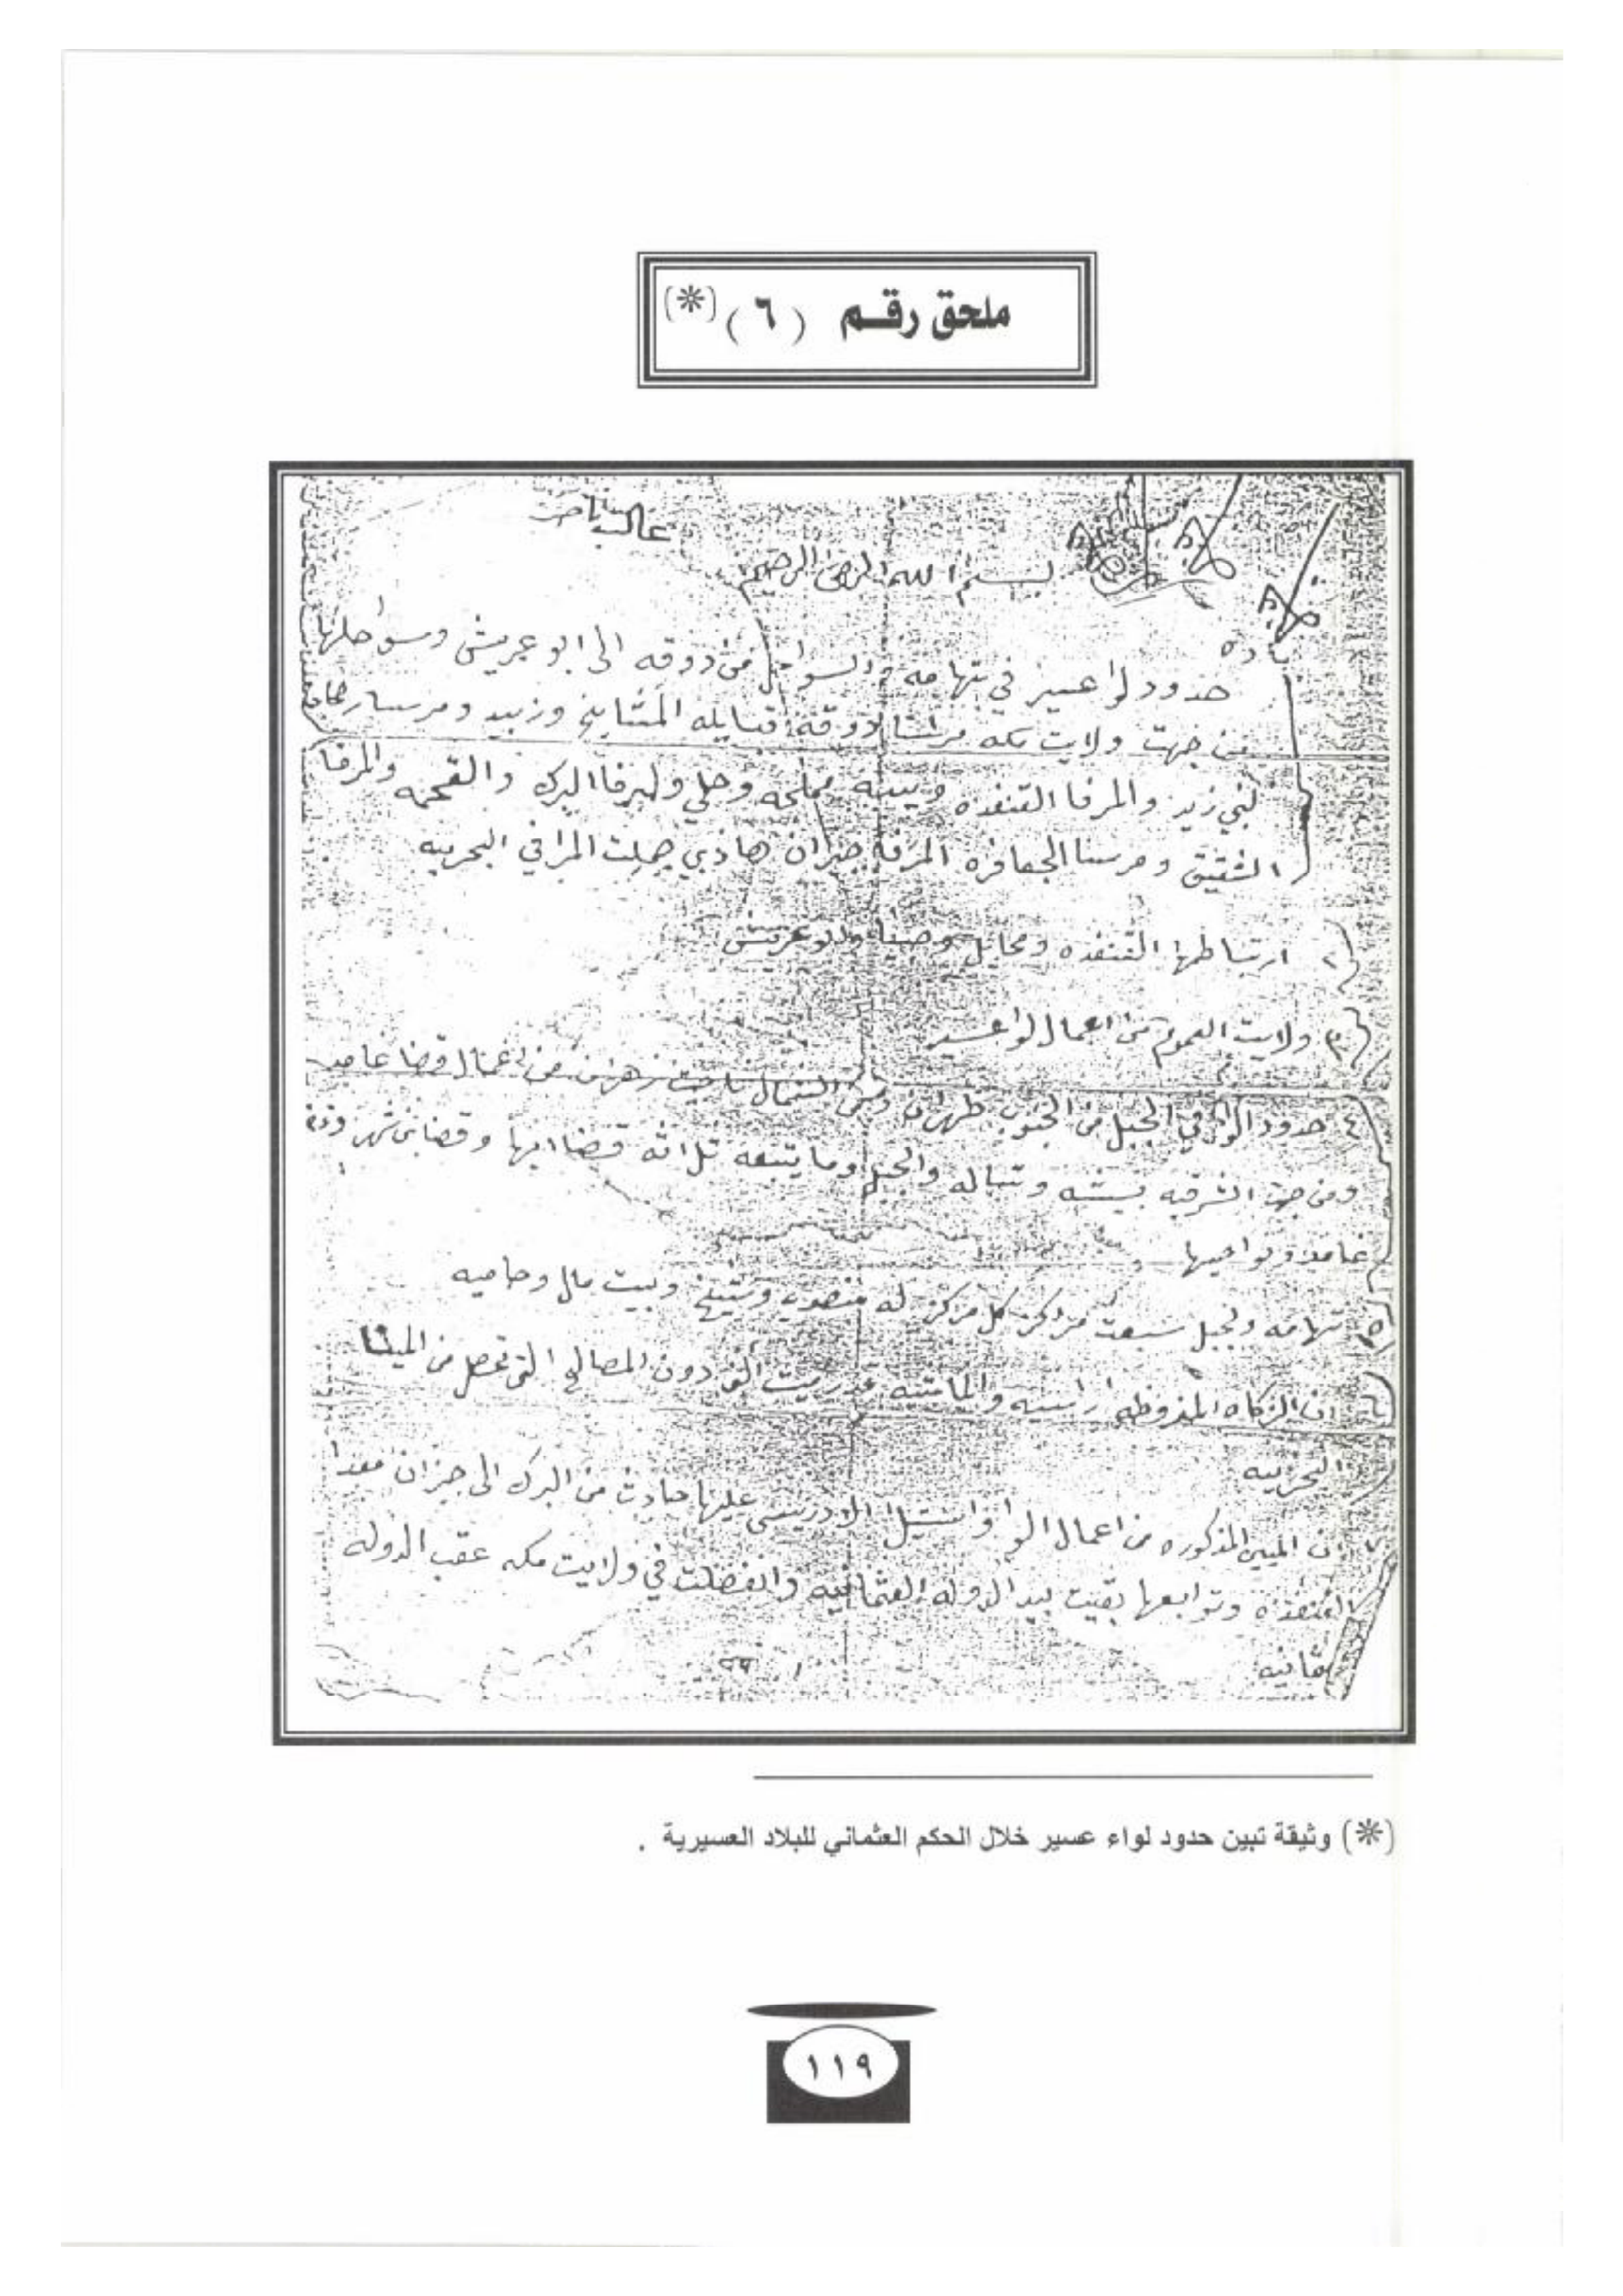 ملحق رقم (٦) (*)
بسم الله الرحمن الرحيم
حدود لوا عسير في تهامه والسواحل من دوقه الى ابو عريش وسواحلها
من جهت ولايت مكه مرسا دوقه قبايله المشايخ وزبيد ومرسا
لبني زيد والمرفا القنفذه ويبيه مملحه وحلي والمرفا البرك والقحمه والمرفا
الشقيق ومرسا الجعافره المرفا جيزان هاذي جملت المرافي البحريه
٢ ارتباطها القنفذه ومحايل وصبيا وابو عريش
٣ ولايت العموم من اعمال لوا عسير
٤ حدود الوا في الجبل من الجنوب ظهران ومن الشمال زهران من اعمال قضا غامد
ومن جهت الشرقيه بيشه وتباله والجبل وما يتبعه ثلاثه قضا ابها وقضا بني شهر وقضا
غامد ونواحيها
٥ تهامه والجبل سبعت مراكز كل مركز له منصوب وشيخ وبيت مال وحاميه
٦ ان الزكاه المفروظه والماشيه دون المصالح التي تحصل من المينا
البحريه
ان المين المذكوره من اعمال الوا واستيلا الادريسي عليها حادث من البرك الى جيزان معدا
القنفذه وتوابعها بقيت بيد الدوله العثمانيه وانفصلت في ولايت مكه عقب الدوله
(*) وثيقة تبين حدود لواء عسير خلال الحكم العثماني للبلاد العسيرية .
١١٩